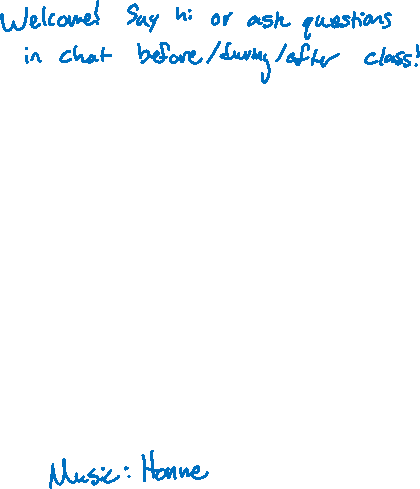 Welcome! Say hi or ask questions
in chat before/during/after class!
Music: Honne